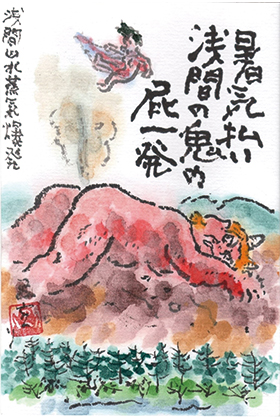 暑気払い
浅間の鬼の
屁一発
浅間山水蒸気爆発